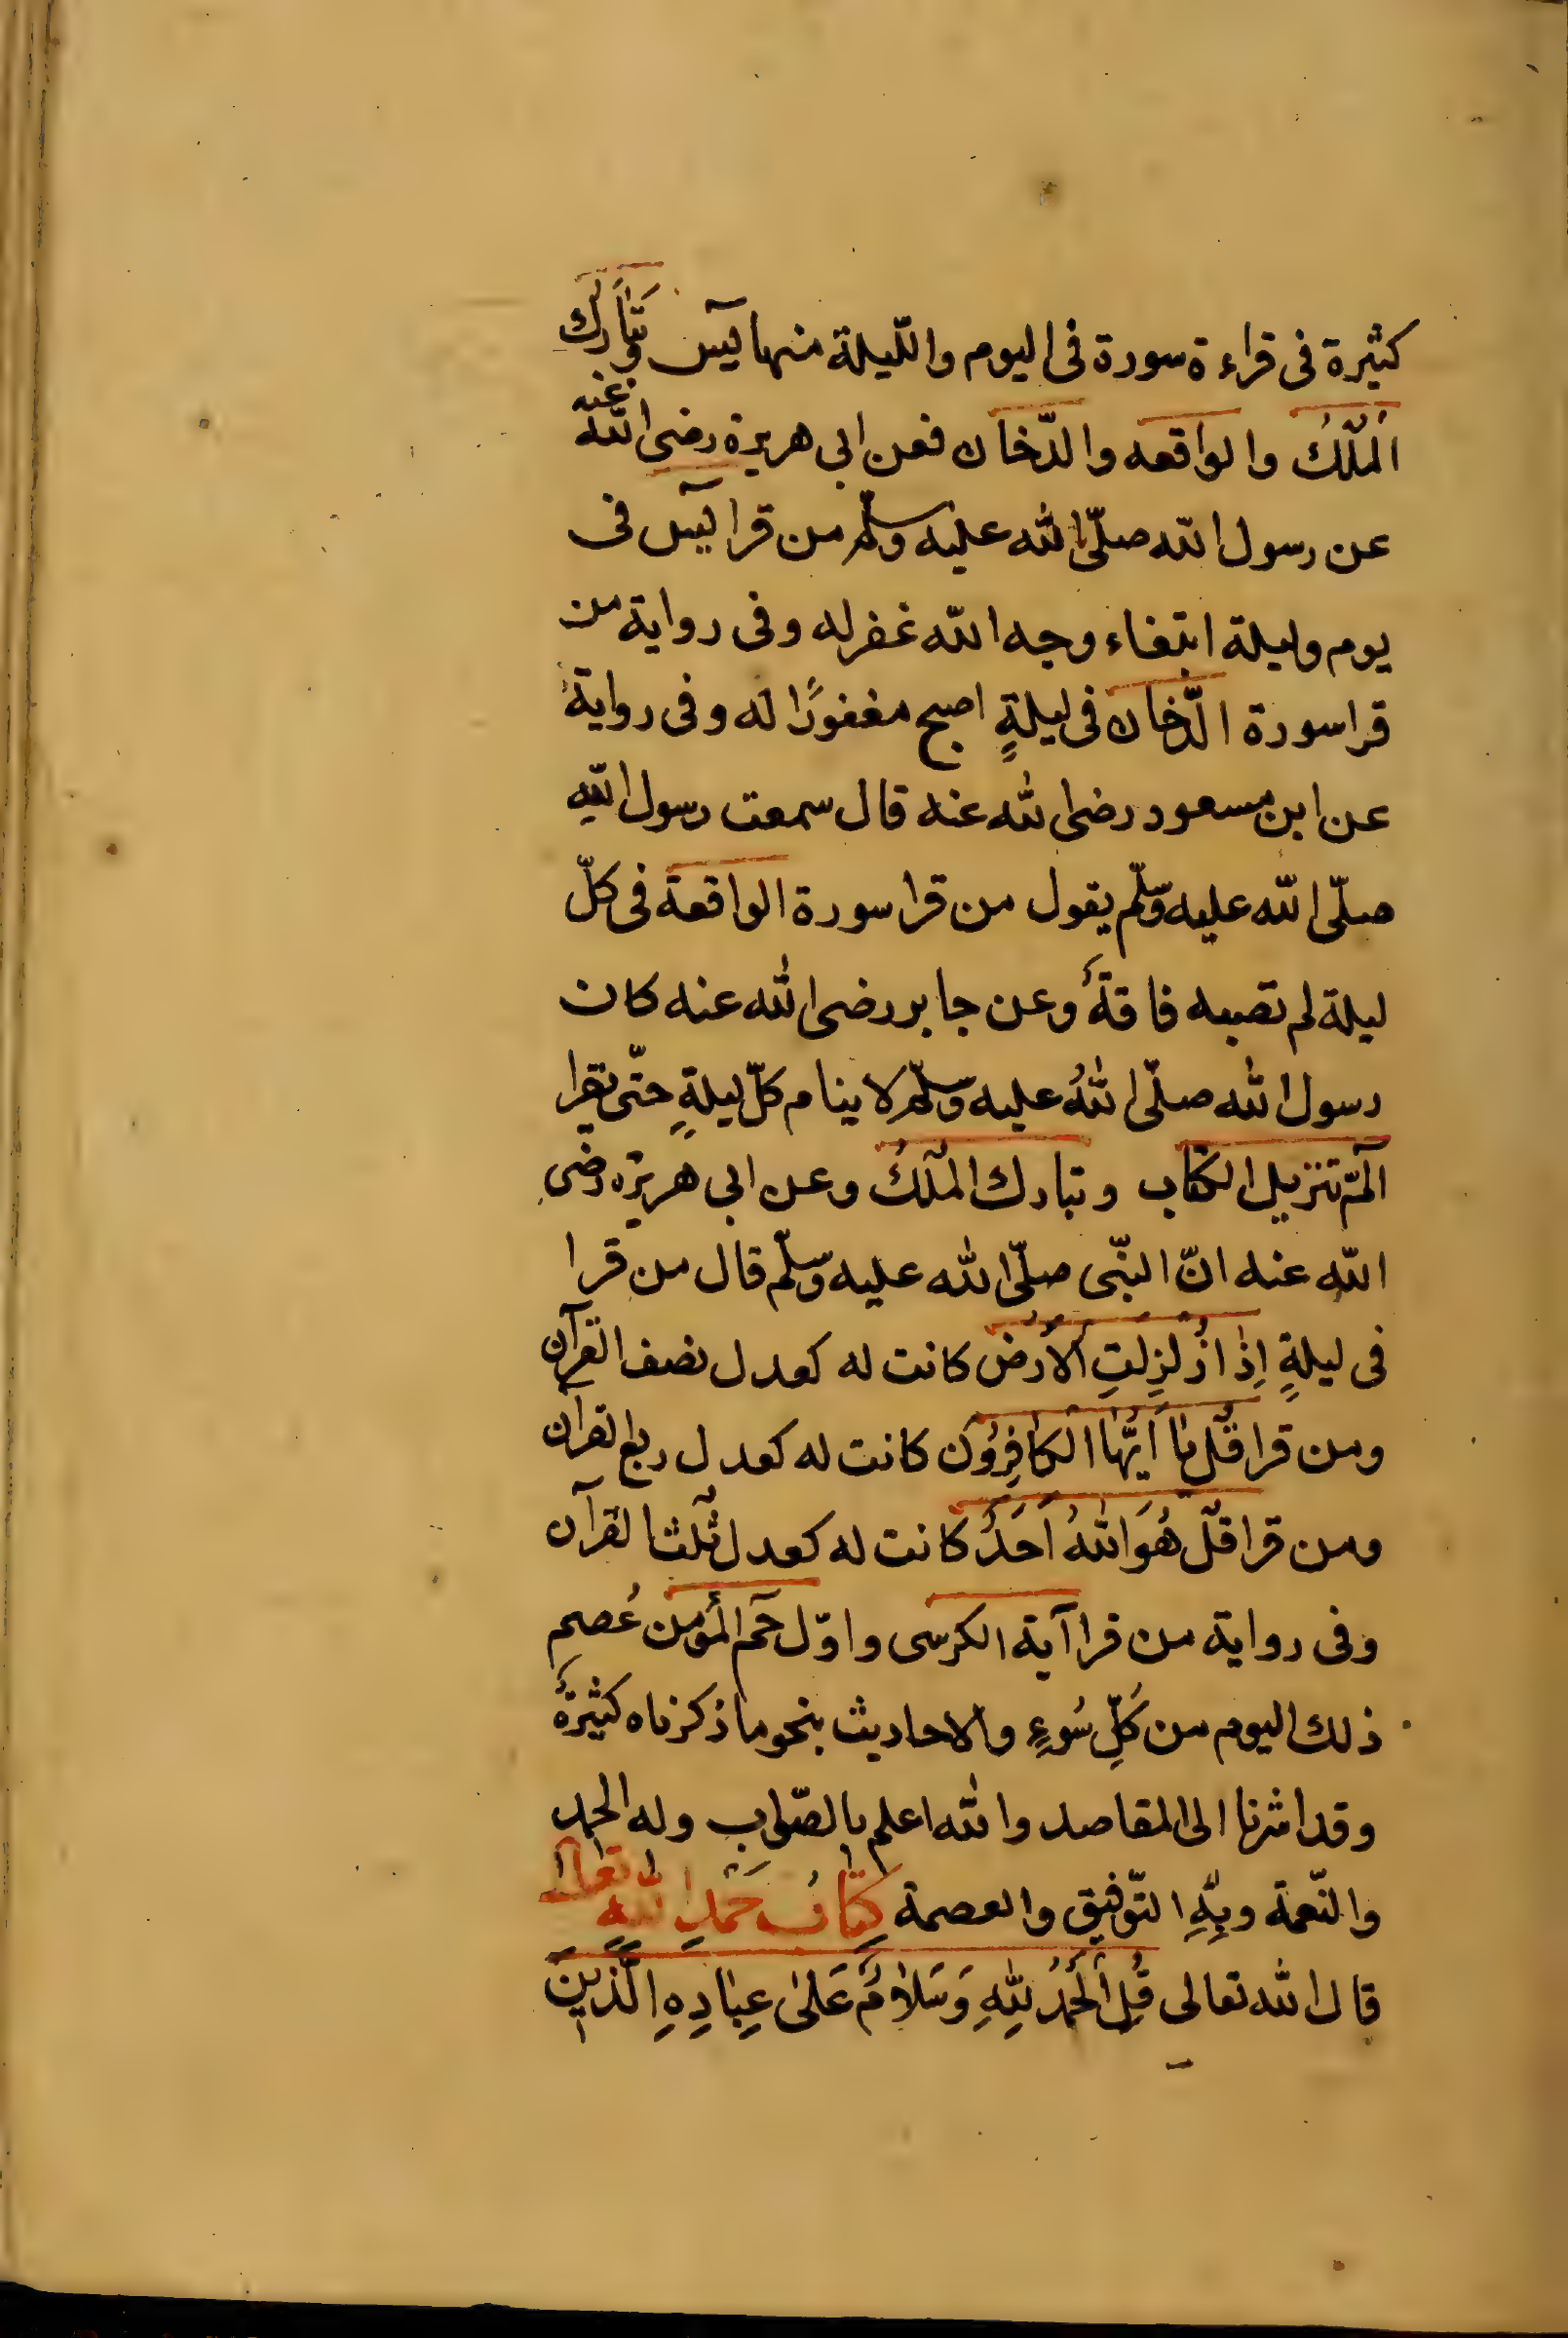 كثيرة فى قراءة سورة فى اليوم والليلة منها يٓس وَتَبَارَكَ
الْمُلْكُ والواقعه والدّخان فعن ابى هريرة رضى الله عنه
عن رسول الله صلّى الله عليه وسلّم من قرا يٓس فى
يوم وليلة ابتغاء وجه الله غفر له وفى رواية من
قرا سورة الدّخان فى ليلةٍ اصبح مغفورًا له وفى رواية
عن ابن مسعود رضى الله عنه قال سمعت رسول اللهِ
صلّى الله عليه وسلّم يقول من قرا سورة الواقعة فى كلّ
ليلة لم تصبه فاقةٌ وعن جابر رضى الله عنه كان
رسول الله صلّى اللهُ عليه وسلّم لا ينام كلّ ليلةٍ حتّى يقرا
الٓمّٓ تنزيل الكتاب وتبارك الملكُ وعن ابى هريرة رضى
الله عنه انّ النبّى صلّى الله عليه وسلّم قال من قرا
فى ليلةٍ اِذَا زُلْزِلَتِ الْاَرْضُ كانت له كعدل نصف القرآن
ومن قرا قُلْ يَا اَيُّهَا الْكَافِرُونَ كانت له كعدل ربع القرآن
ومن قرا قُلْ هُوَ اللهُ اَحَدٌ كانت له كعدل ثُلث القرآن
وفى رواية من قرا آية الكرسى واوّل حٓم المؤمن عُصِم
ذلك اليوم من كُلِّ سُوءٍ والاحاديث بنحو ما ذكرناه كثيرةٌ
وقد اشرنا الى المقاصد والله اعلم بالصّواب وله الحمد
والنّعمة وبِهِ التّوفيق والعصمة كِتَابُ حَمْدِ اللهِ تعالى
قال الله تعالى قُلِ الْحَمْدُ لِلّٰهِ وَسَلَامٌ عَلٰى عِبَادِهِ الَّذِينَ